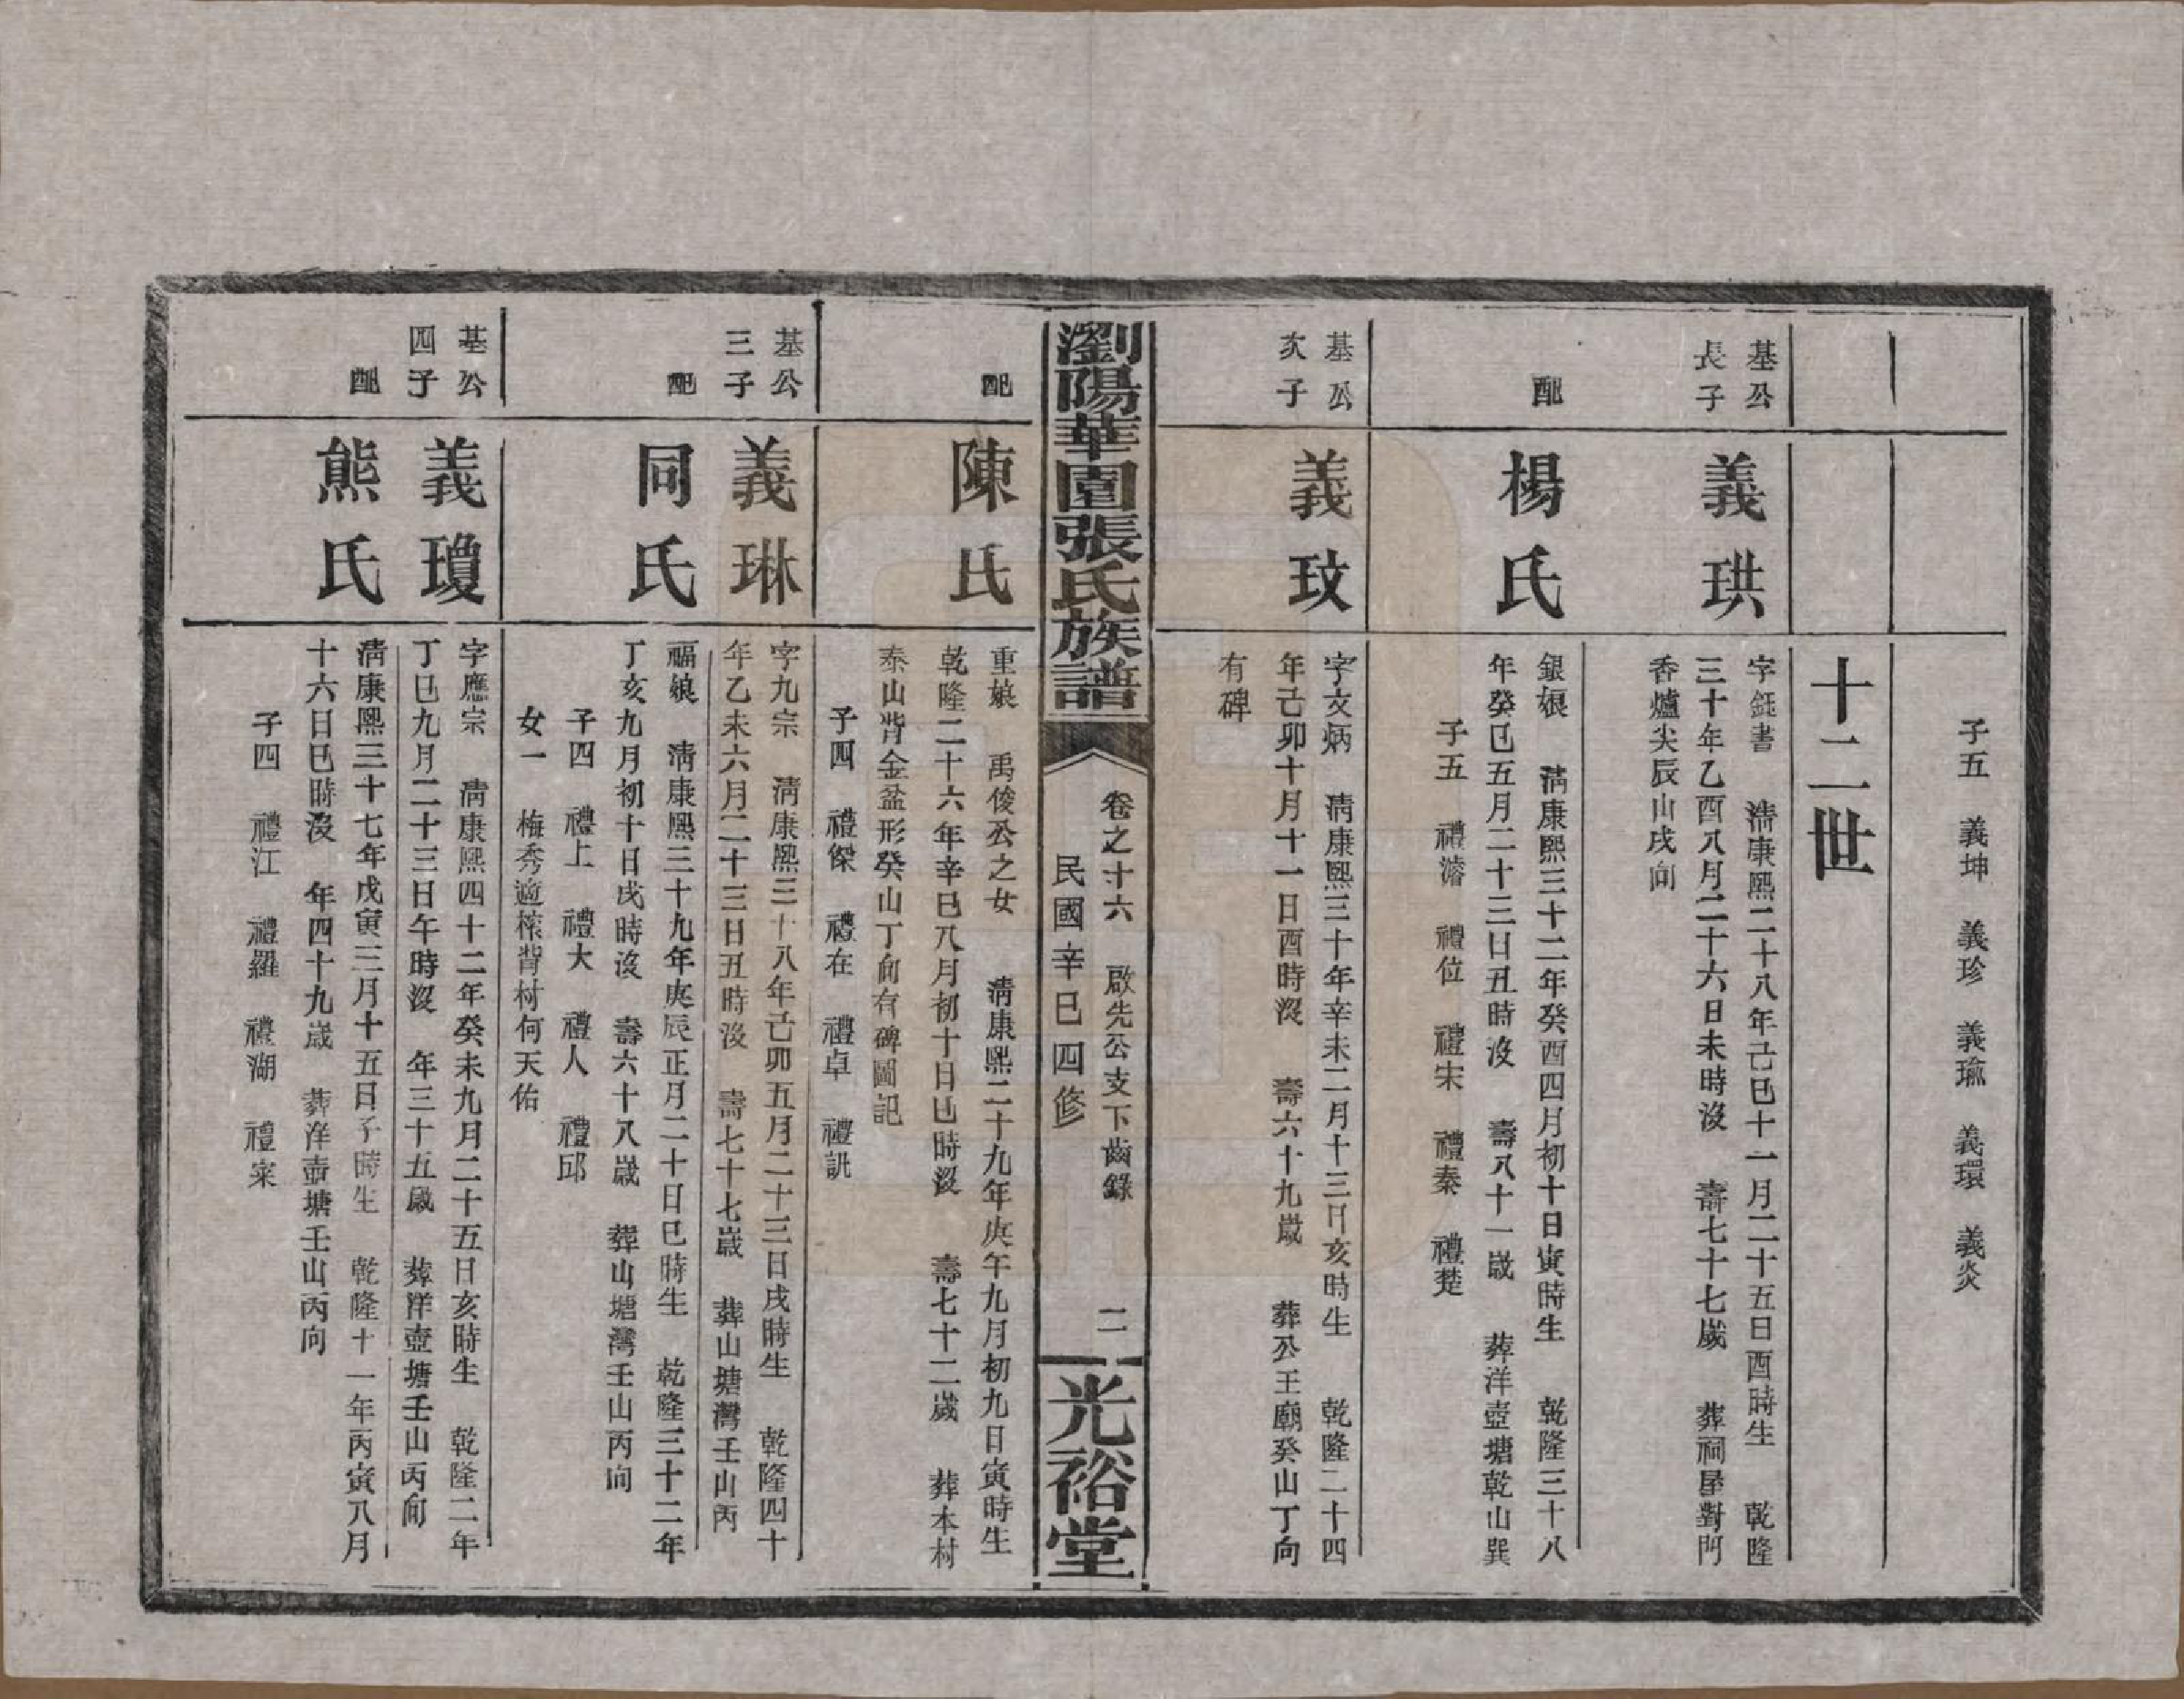 子五　義坤　義珍　義瑜　義環　義炎
十二世
基公
長子
義珙
字鈺書　清康熙二十八年己巳十一月二十五日酉時生　乾隆
三十年乙酉八月二十六日未時沒　壽七十七歲　葬祠屋對門
香爐尖辰山戌向
配
楊氏
銀娘　清康熙三十二年癸酉四月初十日寅時生　乾隆三十八
年癸巳五月二十三日丑時沒　壽八十一歲　葬洋壺塘乾山巽
子五　禮濬　禮位　禮宋　禮秦　禮楚
基公
次子
義玟
字文炳　清康熙三十年辛未二月十三日亥時生　乾隆二十四
年己卯十月十一日酉時沒　壽六十九歲　葬公王廟癸山丁向
有碑
瀏陽華園張氏族譜
卷之十六　啟先公支下齒錄　二
民國辛巳四修
光裕堂
配
陳氏
重娘　禹俊公之女　清康熙二十九年庚午九月初九日寅時生
乾隆二十六年辛巳八月初十日巳時沒　壽七十二歲　葬本村
泰山背金盆形癸山丁向有碑圖記
子四　禮傑　禮在　禮卓　禮誂
基公
三子
義琳
字九宗　清康熙三十八年己卯五月二十三日戌時生　乾隆四十
年乙未六月二十三日丑時沒　壽七十七歲　葬山塘灣壬山丙
配
同氏
福娘　清康熙三十九年庚辰正月二十日巳時生　乾隆三十二年
丁亥九月初十日戌時沒　壽六十八歲　葬山塘灣壬山丙向
子四　禮上　禮大　禮人　禮邱
女一　梅秀適樣背村何天佑
基公
四子
義瓊
字應宗　清康熙四十二年癸未九月二十五日亥時生　乾隆二年
丁巳九月二十三日午時沒　年三十五歲　葬洋壺塘壬山丙向
配
熊氏
清康熙三十七年戊寅三月十五日子時生　乾隆十一年丙寅八月
十六日巳時沒　年四十九歲　葬洋壺塘壬山丙向
子四　禮江　禮羅　禮湖　禮寀